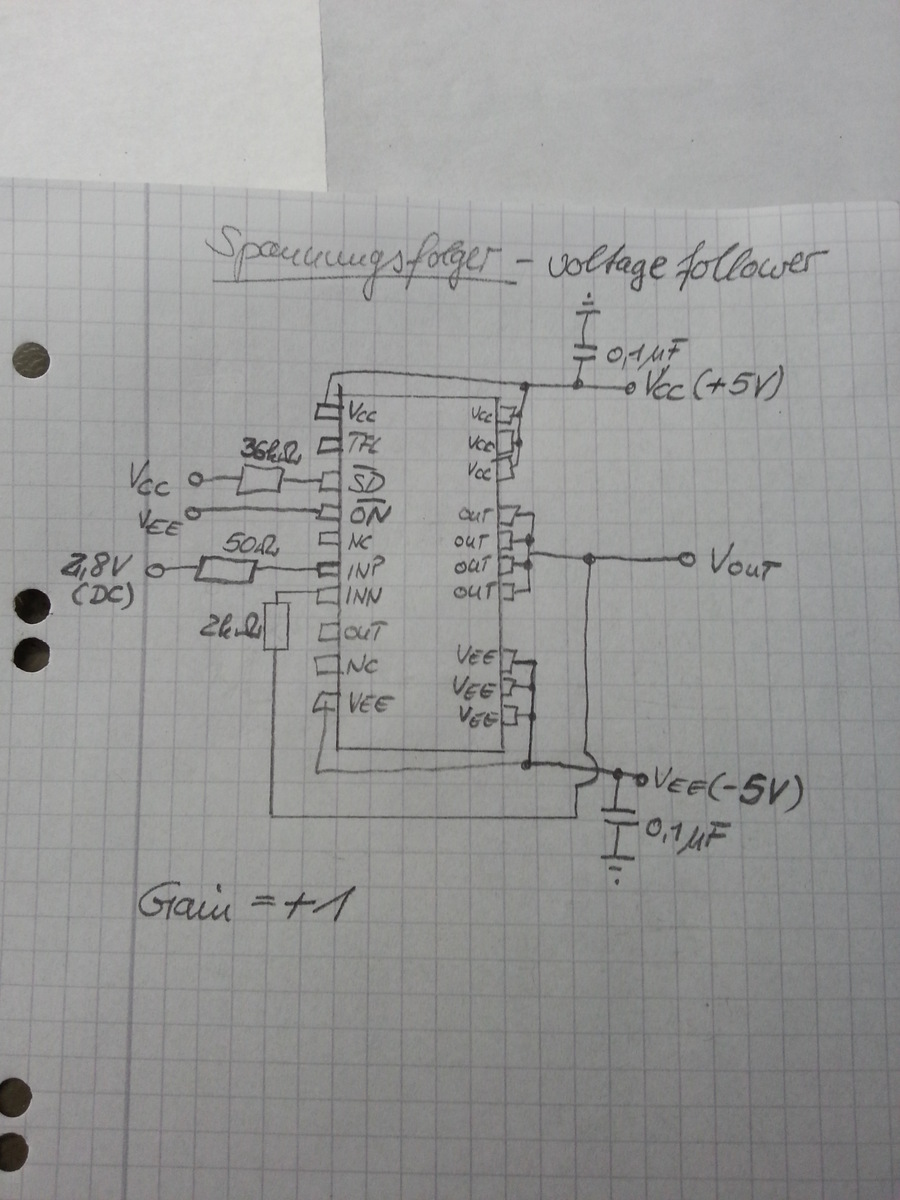 Spannungsfolger - voltage follower
0,1µF
VCC (+5V)
VCC
TFL
36kΩ
VCC
SD
VEE
ON
NC
50Ω
2,8V
(DC)
INP
INN
2kΩ
OUT
NC
VEE
VCC
VCC
VCC
OUT
OUT
OUT
OUT
VOUT
VEE
VEE
VEE
VEE (-5V)
0,1µF
Gain = +1